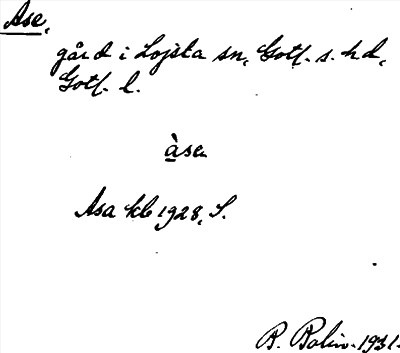 Ase,
gård i Lojsta sn, Gotl. s. hd,
Gotl. l.
àse
Asa kb 1928, S.
B. Bolin. 1931.